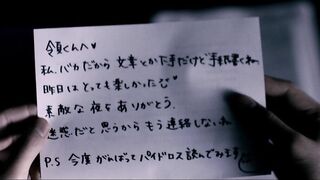 領くんへ♥
私、バカだから 文章とか下手だけど 手紙書くね。
昨日は とっても楽しかった♡
素敵な夜を ありがとう。
迷惑だと思うから もう連絡しないね
P.S 今度 がんばって パイドロス 読んでみます